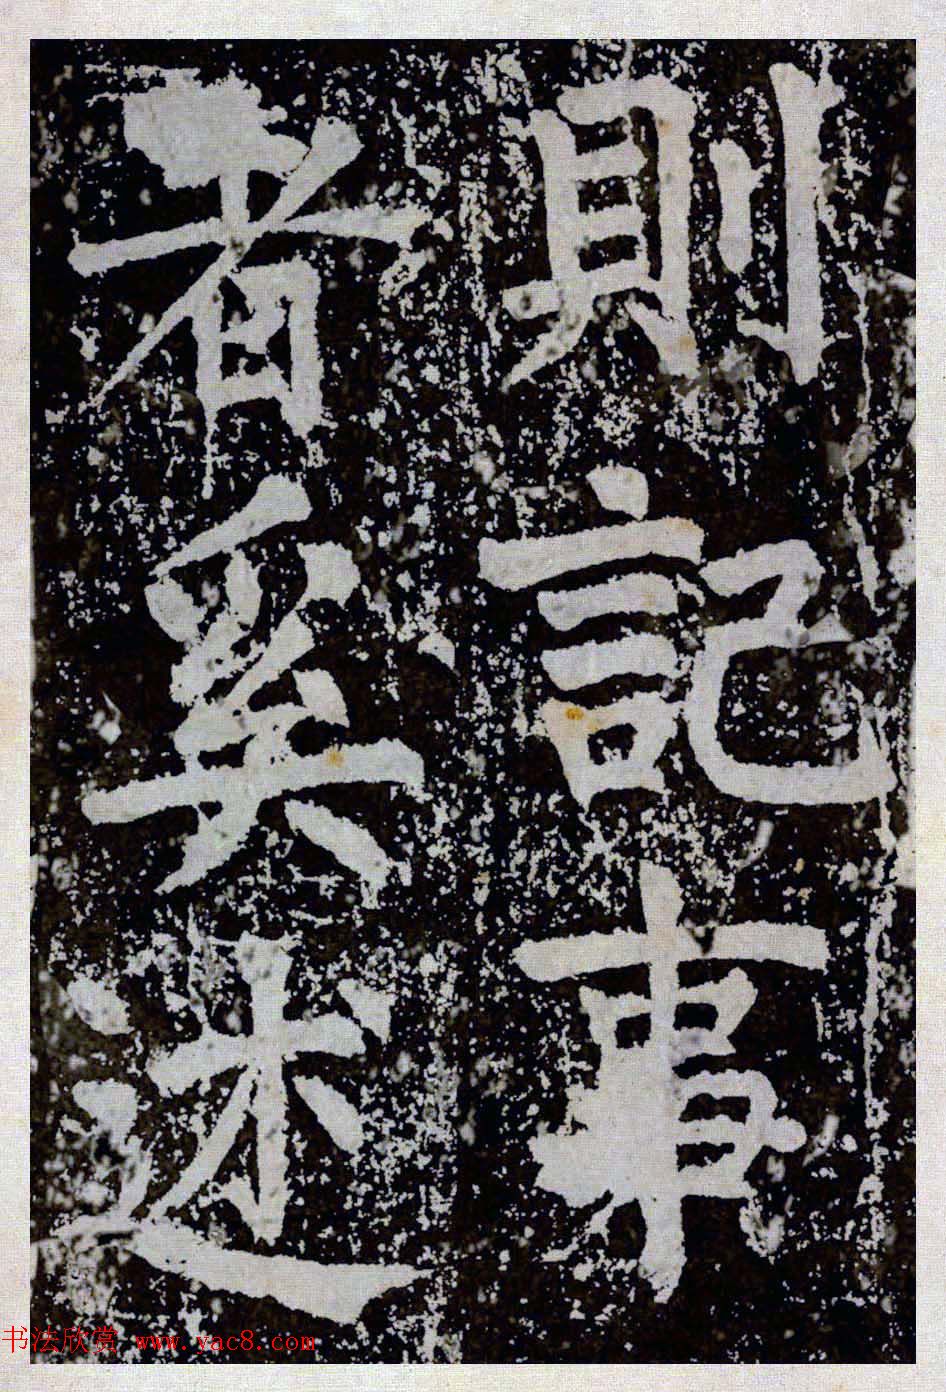 則記事
者奚述
书法欣赏 www.yac8.com